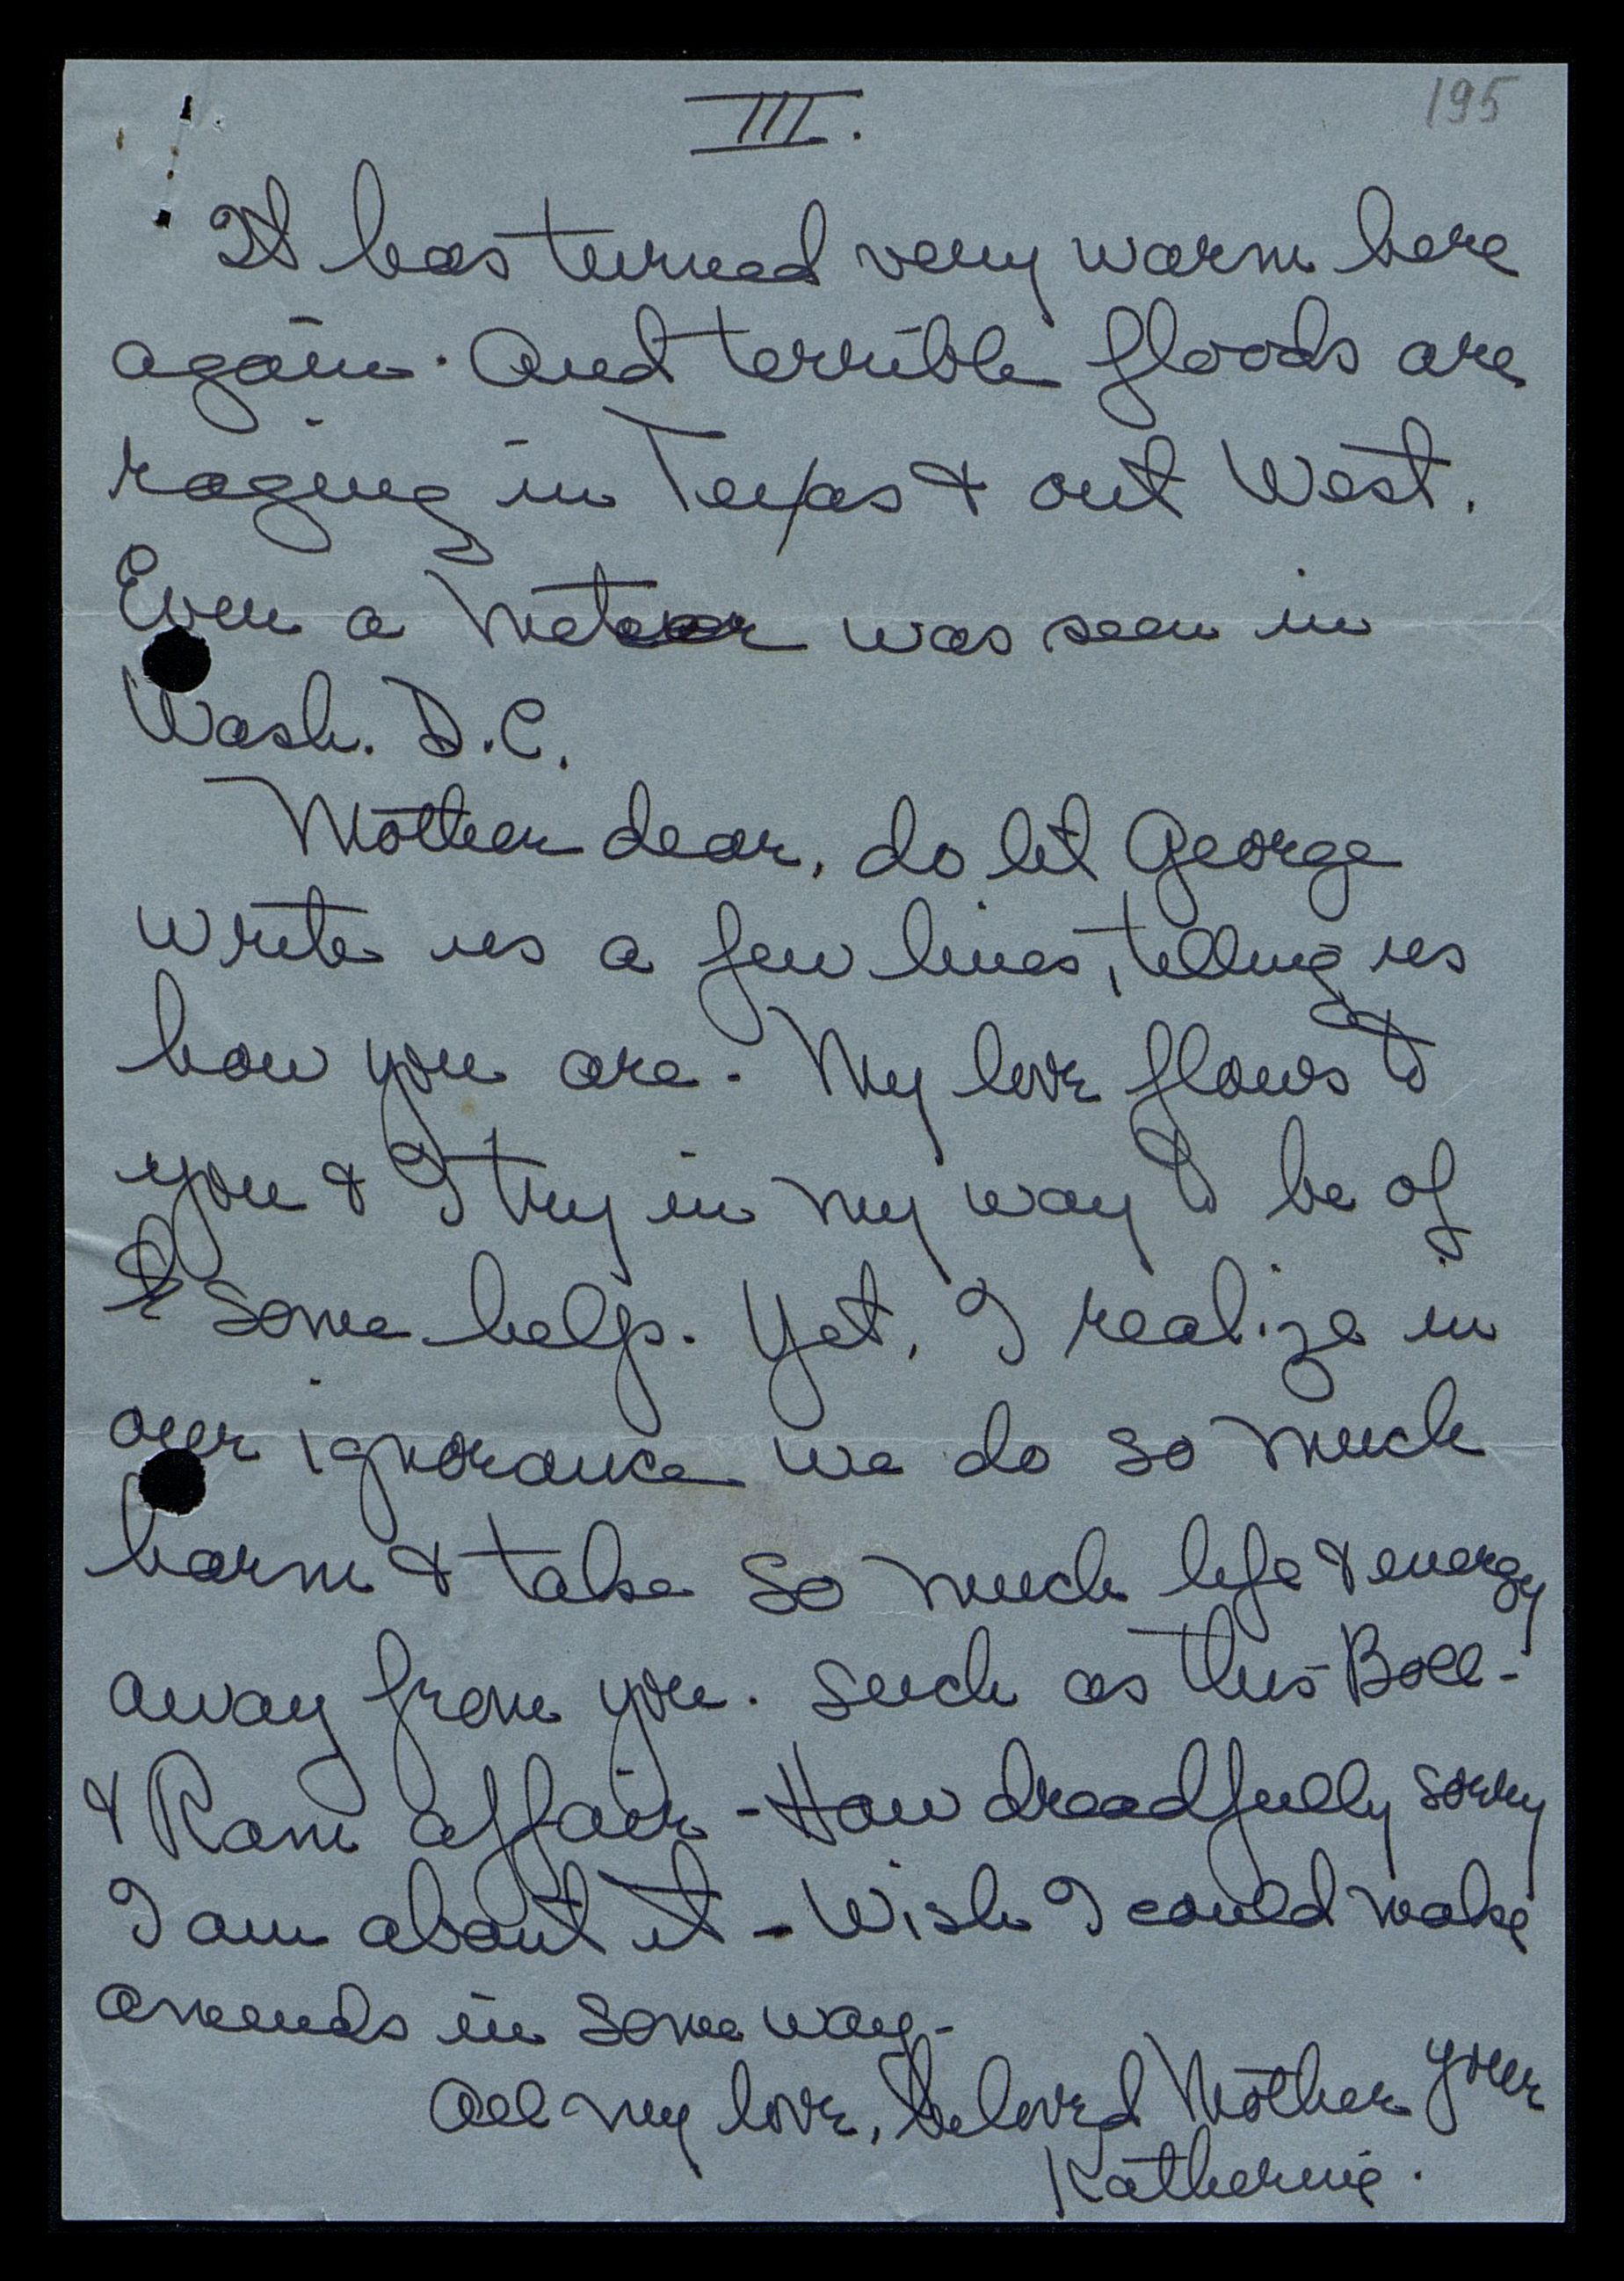 195
III.
It has turned very warm here
again. And terrible floods are
raging in Texas & out West.
Even a Meteor was seen in
Wash. D.C.
Mother dear, do let George
write us a few lines, telling us
how you are. My love flows to
you & I try in my way to be of
some help. Yet, I realize in
our ignorance we do so much
harm & take so much life & energy
away from you. Such as this Boll-
& Ram affair - How dreadfully sorry
I am about it - Wish I could make
amends in some way -
All my love, beloved Mother your
Katherine.